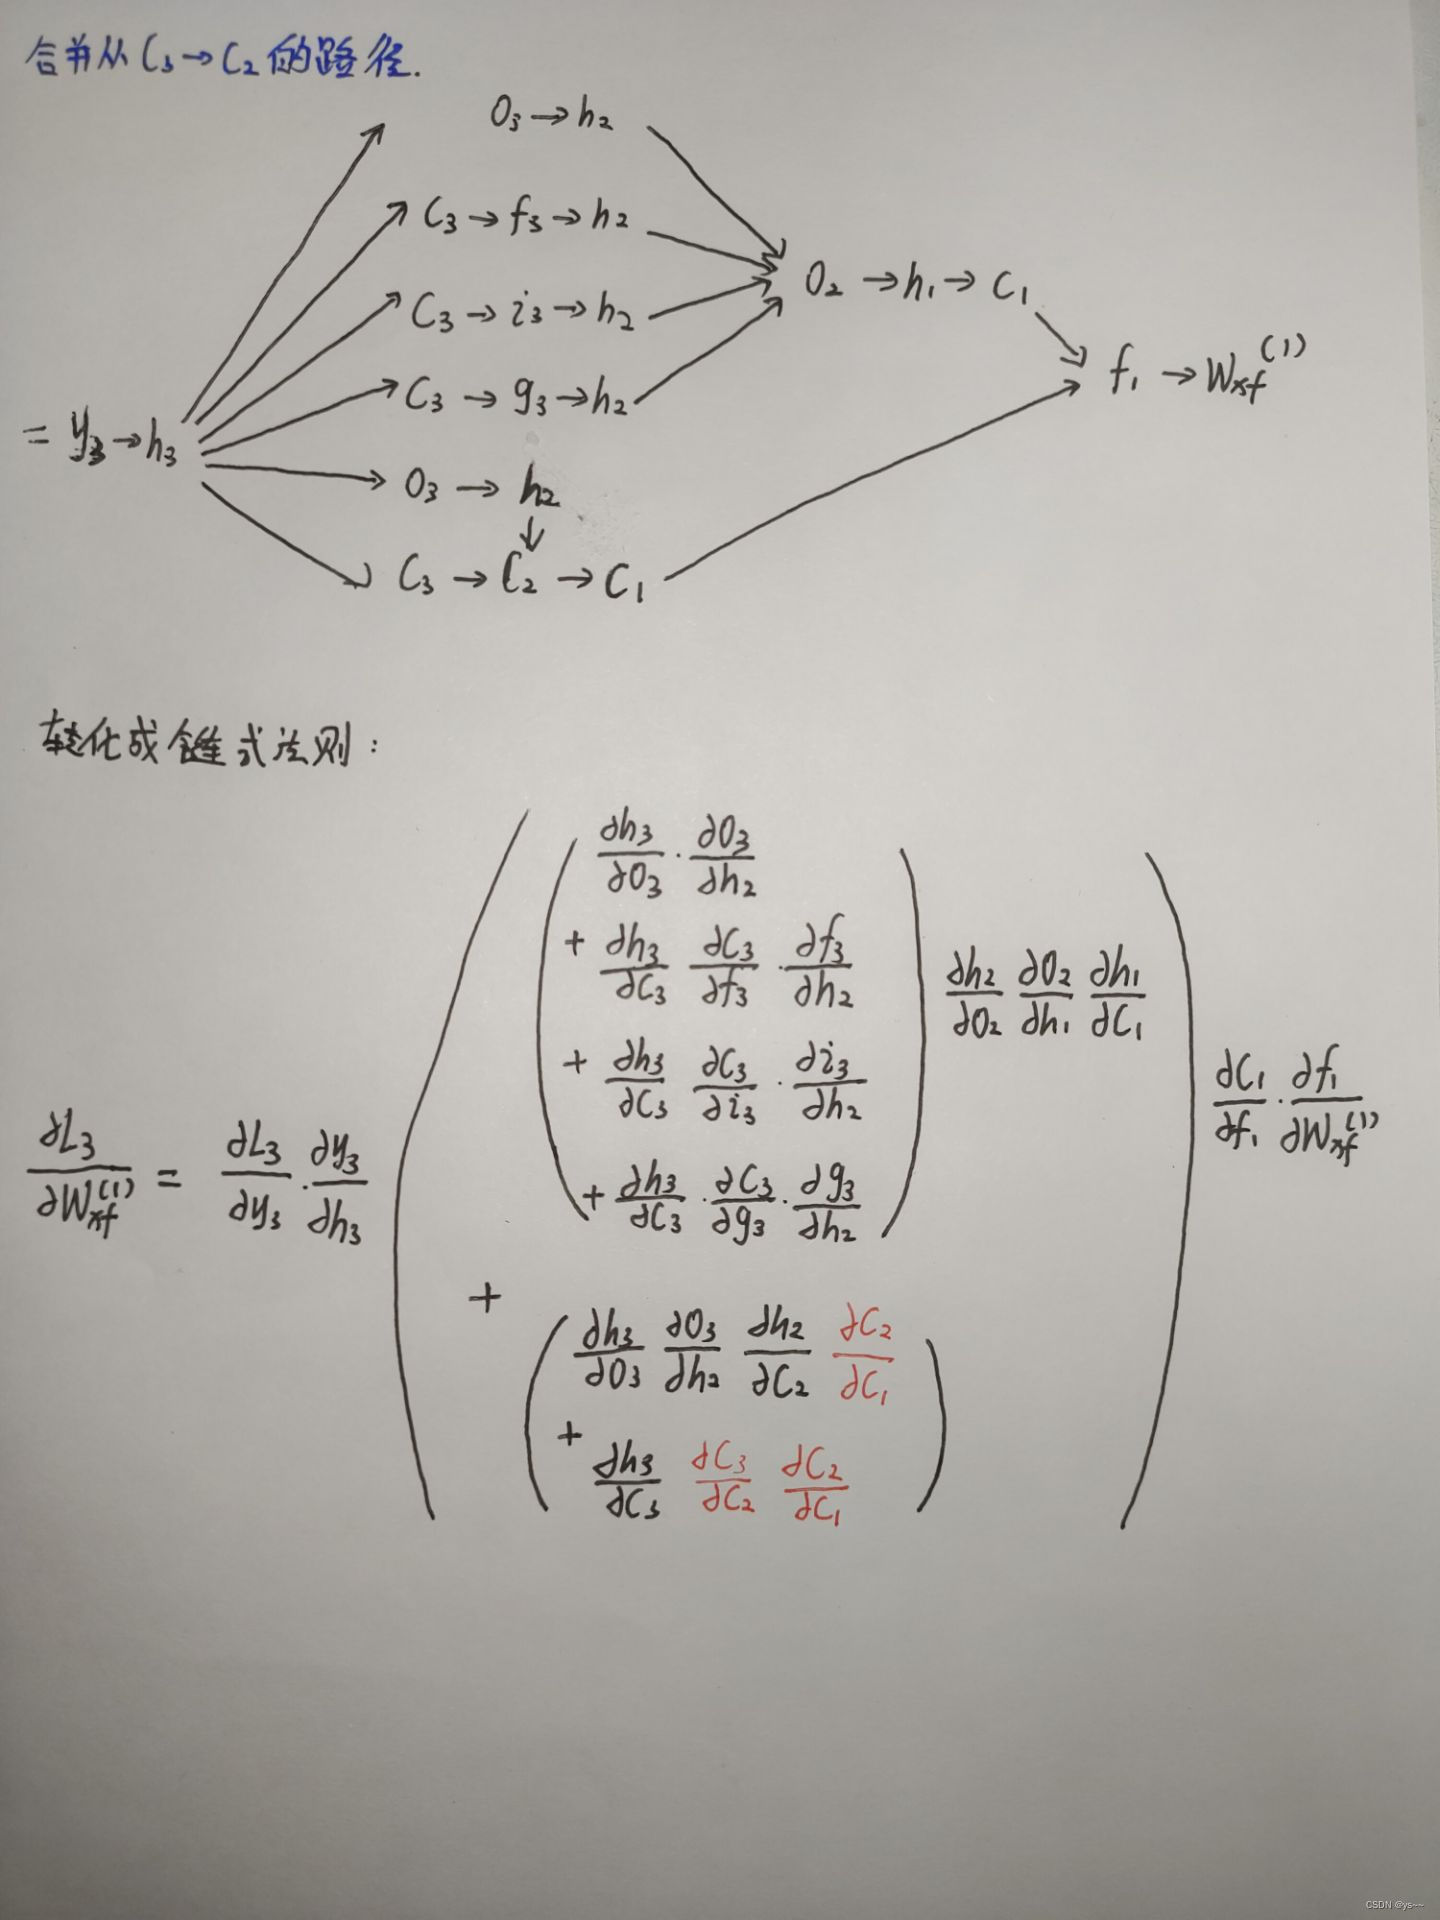 合并从 C₃→C₂ 的路径.
O₃→h₂
C₃→f₃→h₂
O₂→h₁→C₁
C₃→i₃→h₂
f₁→Wxf⁽¹⁾
C₃→g₃→h₂
= y₃→h₃
O₃→h₂
↓
C₃→C₂→C₁
转化成链式法则:
∂L₃/∂Wxf⁽¹⁾ = ∂L₃/∂y₃ · ∂y₃/∂h₃ ( ( ∂h₃/∂O₃ · ∂O₃/∂h₂
+ ∂h₃/∂C₃ ∂C₃/∂f₃ · ∂f₃/∂h₂
+ ∂h₃/∂C₃ ∂C₃/∂i₃ · ∂i₃/∂h₂
+ ∂h₃/∂C₃ · ∂C₃/∂g₃ · ∂g₃/∂h₂ ) ∂h₂/∂O₂ ∂O₂/∂h₁ ∂h₁/∂C₁
+
( ∂h₃/∂O₃ ∂O₃/∂h₂ ∂h₂/∂C₂ ∂C₂/∂C₁
+ ∂h₃/∂C₃ ∂C₃/∂C₂ ∂C₂/∂C₁ ) ) ∂C₁/∂f₁ · ∂f₁/∂Wxf⁽¹⁾
CSDN @ys~~